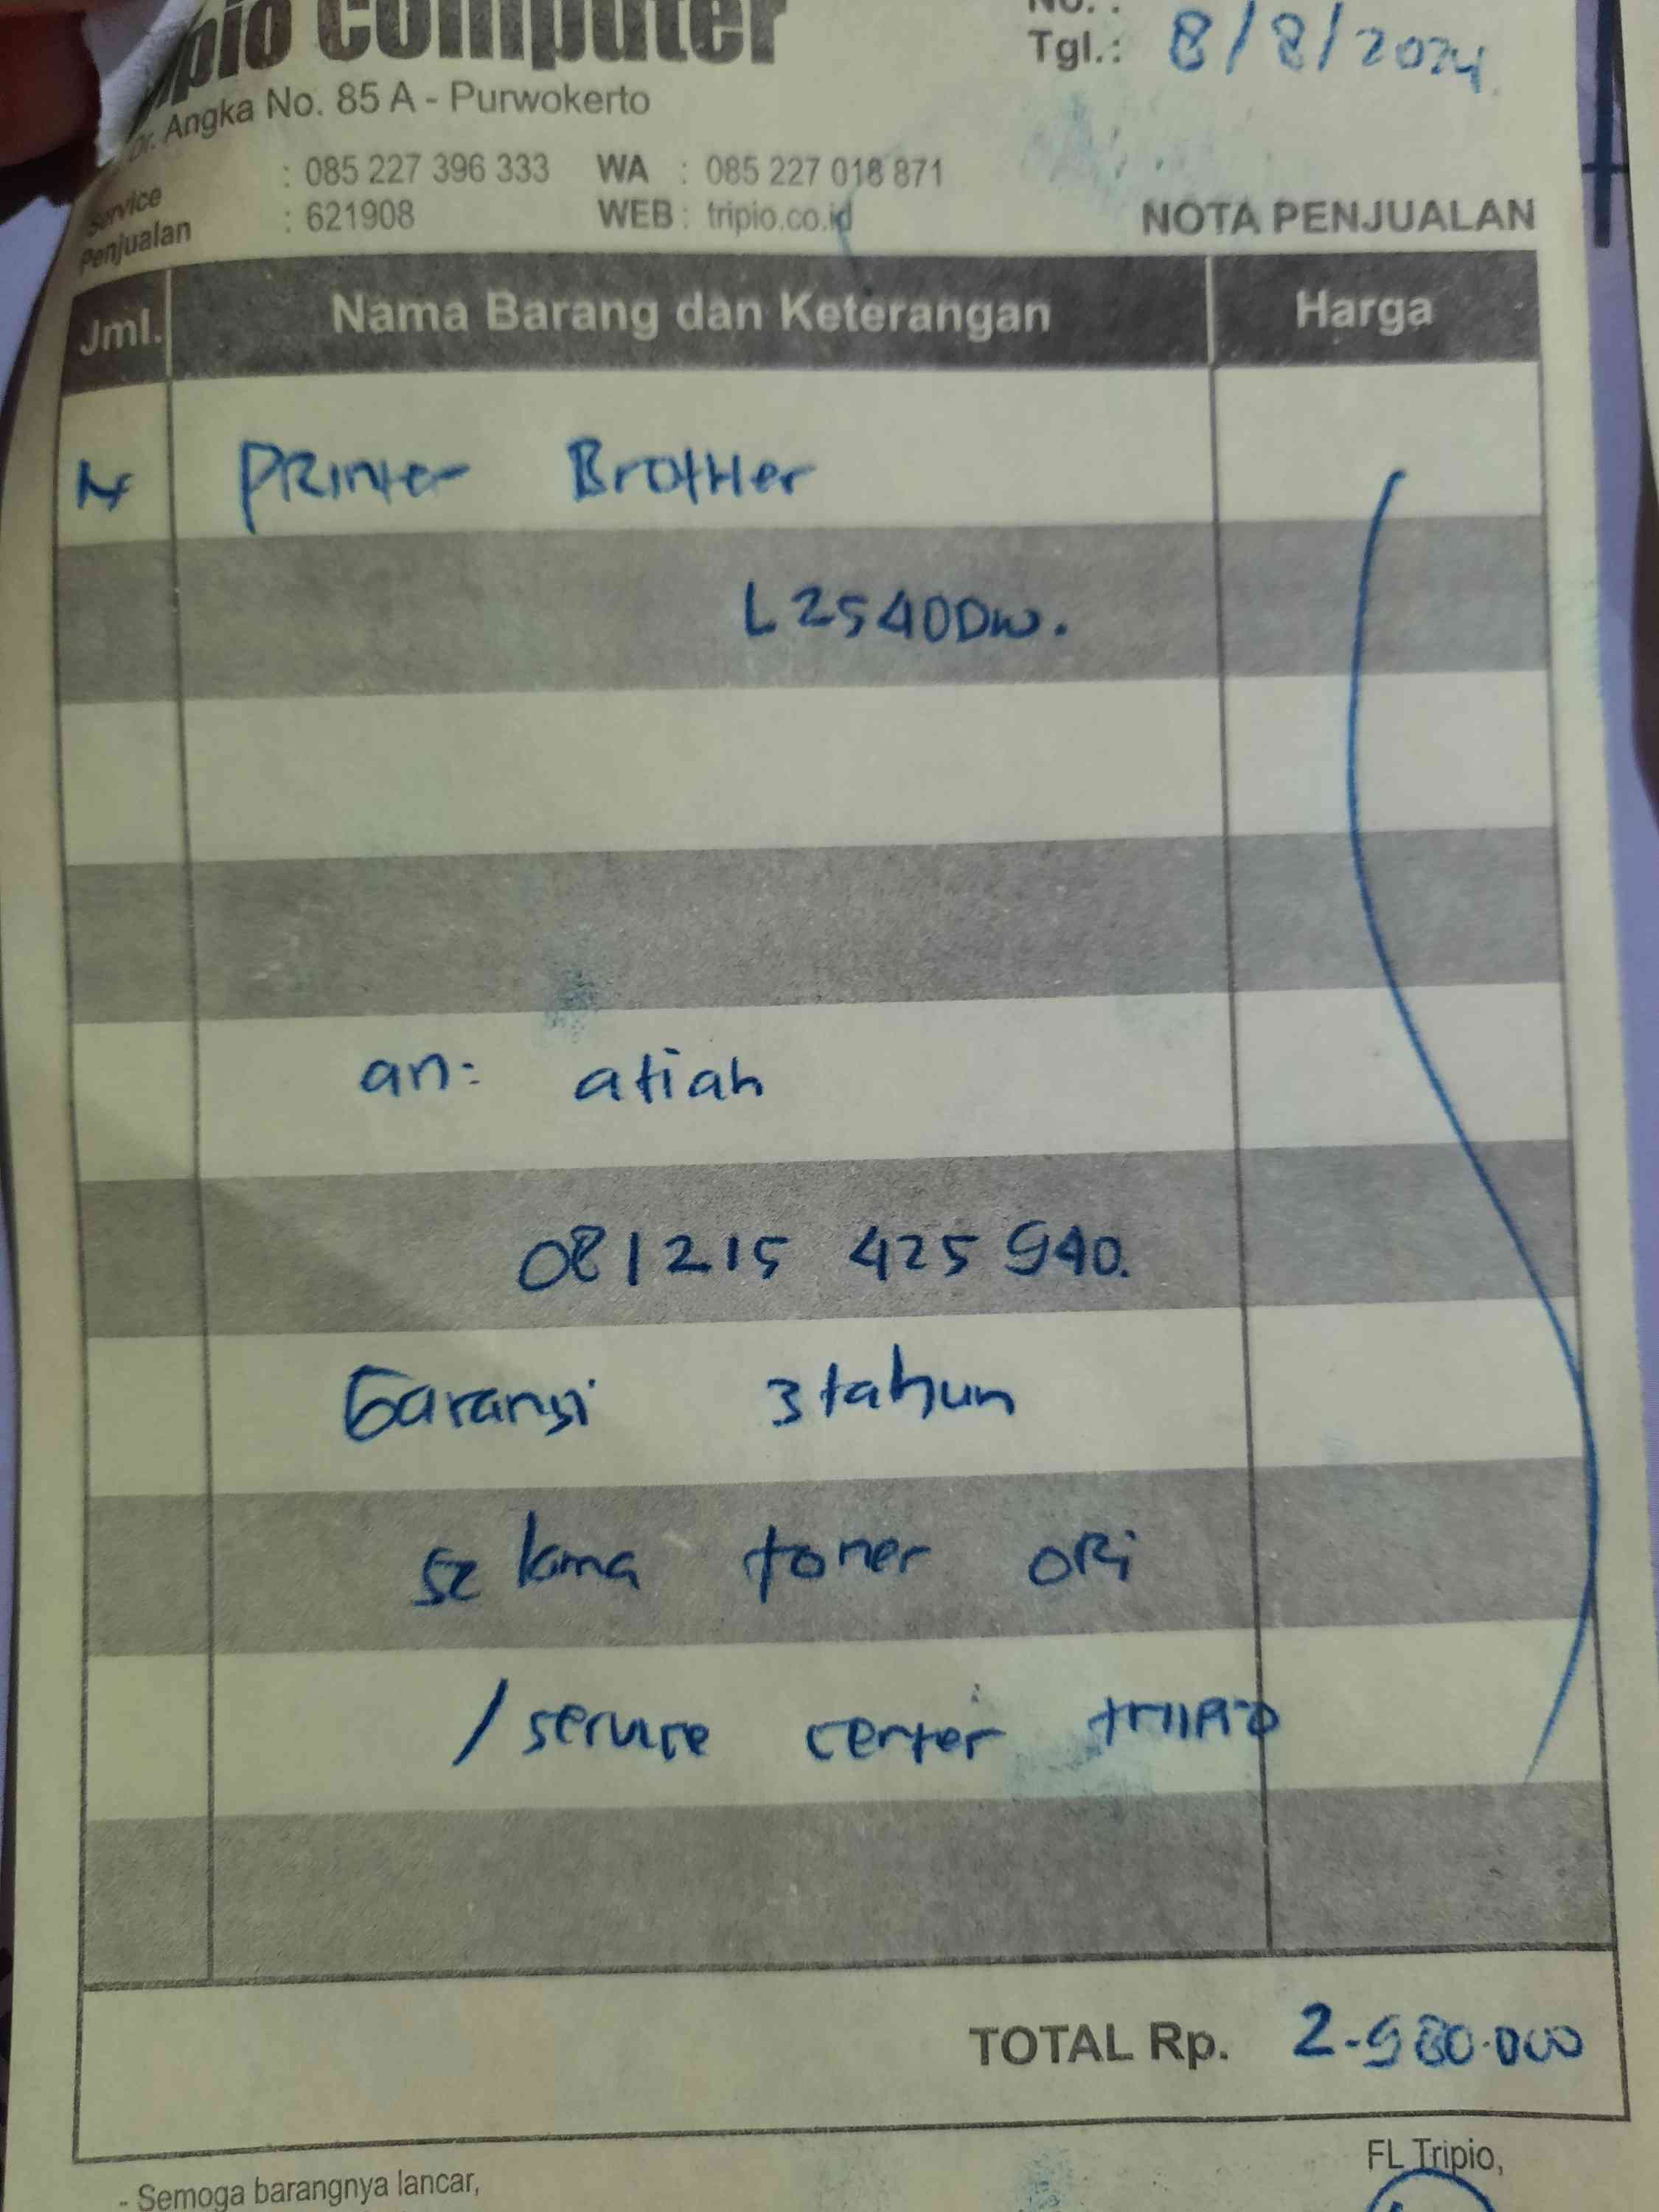 Computer
No. :
Tgl.: 8/8/2024
Dr. Angka No. 85 A - Purwokerto
Service : 085 227 396 333 WA : 085 227 018 871
Penjualan : 621908 WEB : tripio.co.id
NOTA PENJUALAN
Jml. Nama Barang dan Keterangan Harga
Printer Brother
L2540Dw.
an: atiah
081215 425 940.
Garansi 3 tahun
selama toner ori
/ service center
TOTAL Rp. 2.980.000
FL Tripio,
- Semoga barangnya lancar,